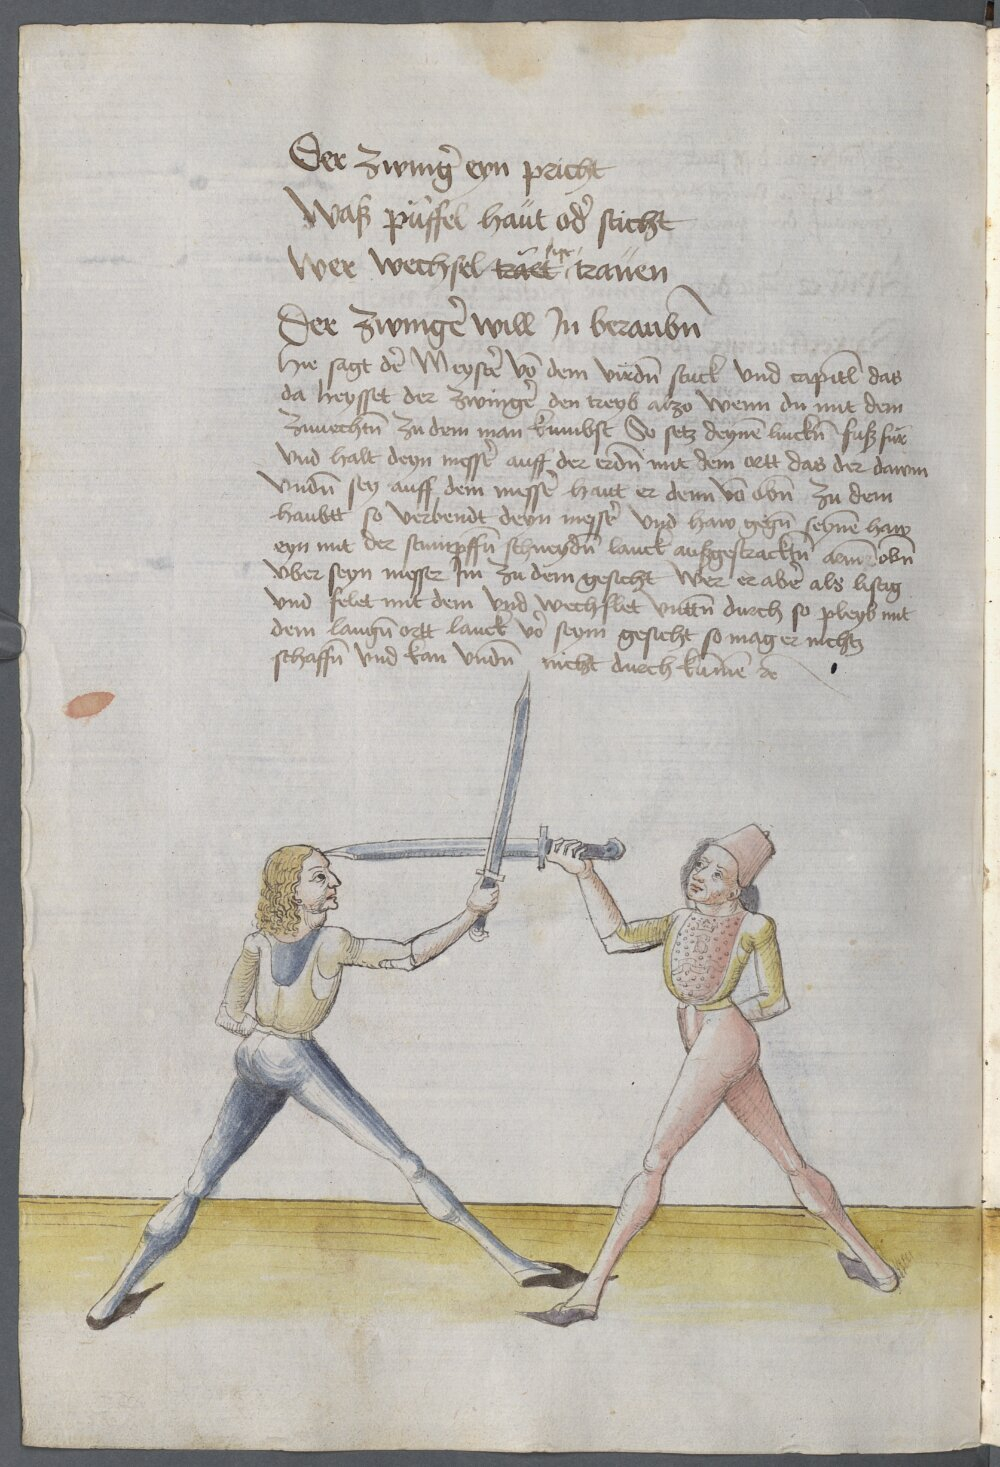 Der zwinger eyn pricht
Waß püffel haüt oder sticht
Wer wechsel trauen
Der zwinger will In beraubn̄
Hie sagt der Meyster võ dem virdn̄ stuck vnd capitl das
da heysset der zwinger den treyb alzo wenn du mit dem
zuuechtn̄ zu dem man kumbst So setz deynē linckn̄ fuß für
vnd halt deyn messer auff der erdn̄ mit dem ortt das der dawm
vndn̄ sey auff dem messer haut er denn võ obn̄ zu dem
haubtt so verbendt deyn messer vnd haw gegn̄ seynē haw
eyn mit der stumpffn̄ schneydn̄ lanck außgestracktn̄ obn̄
vber seyn messer Im zu dem gesicht Wer er aber als listig
vnd felet mit dem vnd wechslet vnttn̄ durch so pleyb mit
dem langn̄ ortt lanck vor seym gesicht so mag er nichtz
schaffn̄ vnd kan vndn̄ nicht durch kūmē ꝛc